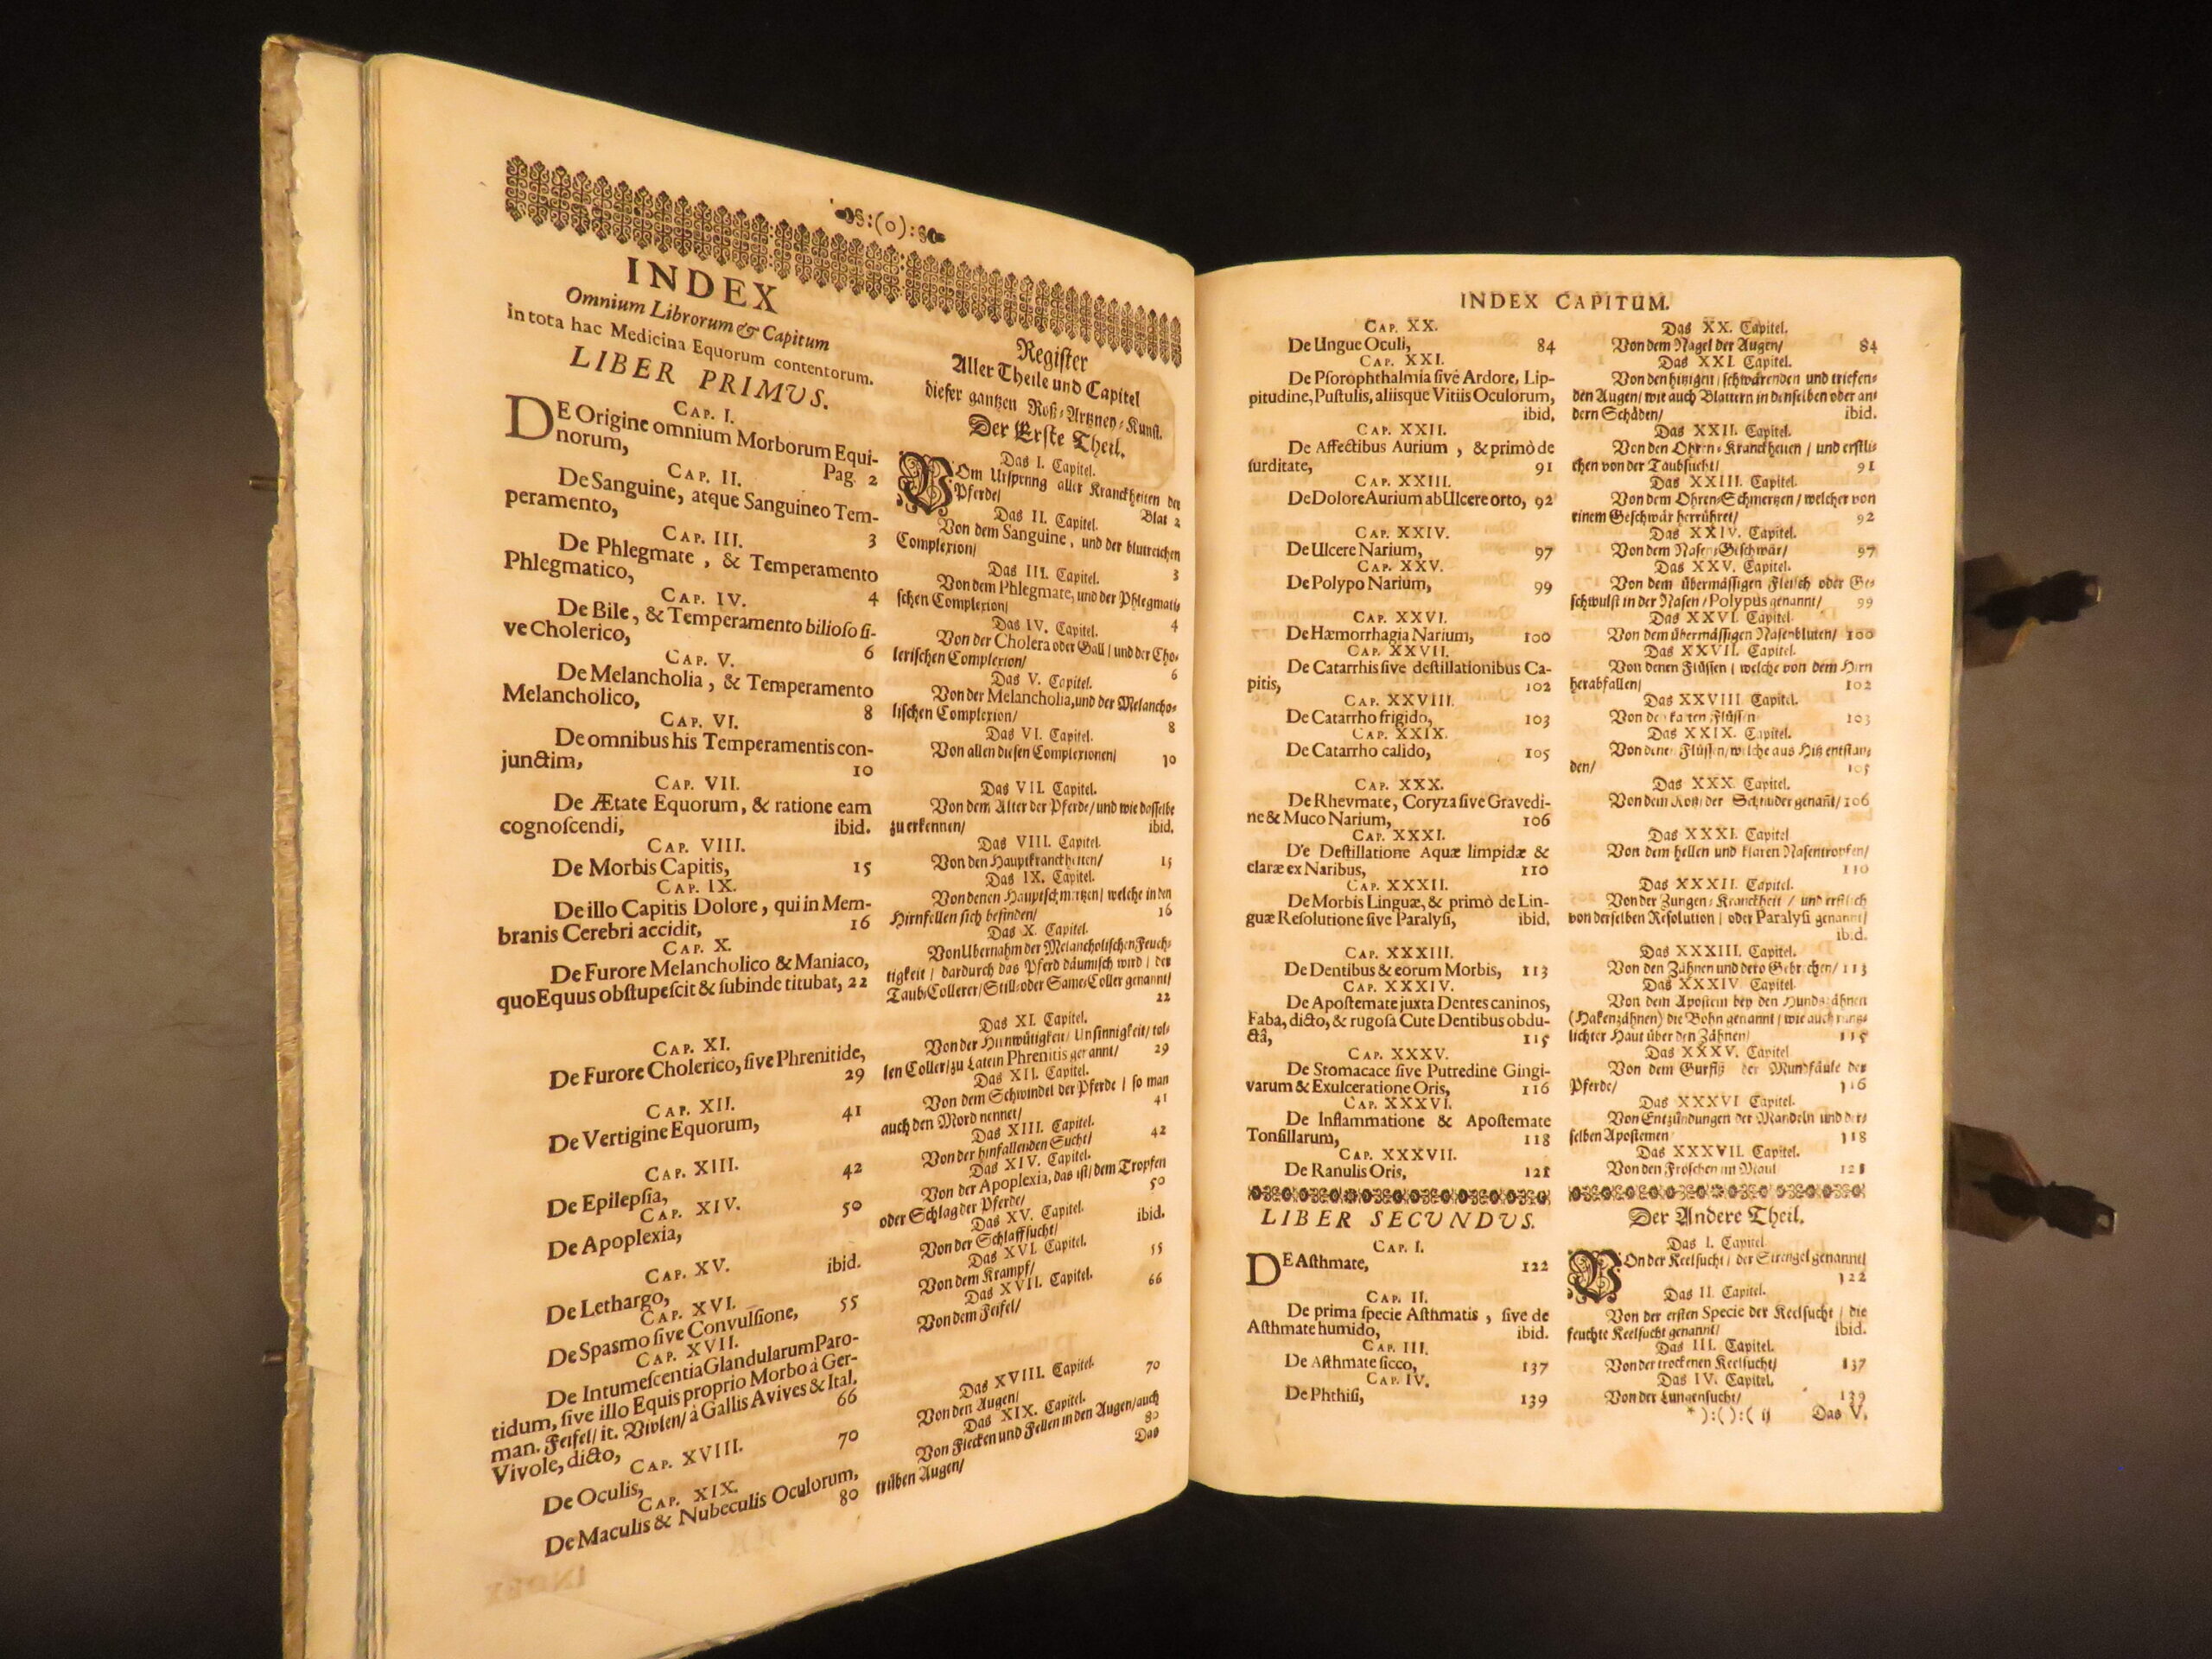 INDEX
Omnium Librorum & Capitum
in tota hac Medicina Equorum contentorum.
LIBER PRIMUS.
CAP. I.
DE Origine omnium Morborum Equi-
norum, Pag. 2
CAP. II.
De Sanguine, atque Sanguineo Tem-
peramento, 3
CAP. III.
De Phlegmate, & Temperamento
Phlegmatico, 4
CAP. IV.
De Bile, & Temperamento bilioſo ſi-
ve Cholerico, 6
CAP. V.
De Melancholia, & Temperamento
Melancholico, 8
CAP. VI.
De omnibus his Temperamentis con-
junctim, 10
CAP. VII.
De Ætate Equorum, & ratione eam
cognoſcendi, ibid.
CAP. VIII.
De Morbis Capitis, 15
CAP. IX.
De illo Capitis Dolore, qui in Mem-
branis Cerebri accidit, 16
CAP. X.
De Furore Melancholico & Maniaco,
quo Equus obſtupeſcit & ſubinde titubat, 22
CAP. XI.
De Furore Cholerico, ſive Phrenitide,
29
CAP. XII.
De Vertigine Equorum, 41
CAP. XIII.
De Epilepſia, 42
CAP. XIV.
De Apoplexia, 50
CAP. XV.
De Lethargo, ibid.
CAP. XVI.
De Spasmo ſive Convulſione, 55
CAP. XVII.
De Intumeſcentia Glandularum Paro-
tidum, ſive illo Equis proprio Morbo à Ger-
man. Feifel/ it. Vivlen/ à Gallis Avives & Ital.
Vivole, dicto, 66
CAP. XVIII.
De Oculis, 70
CAP. XIX.
De Maculis & Nubeculis Oculorum,
80
Regiſter
Aller Theile und Capitel
dieſer gantzen Roß-Artzney-Kunſt.
Der Erſte Theil.
Das I. Capitel.
VOm Urſprung aller Kranckheiten der
Pferde/ Blat 2
Das II. Capitel.
Von dem Sanguine, und der blutreichen
Complexion/ 3
Das III. Capitel.
Von dem Phlegmate, und der Phlegmati-
ſchen Complexion/ 4
Das IV. Capitel.
Von der Cholera oder Gall/ und der Cho-
leriſchen Complexion/ 6
Das V. Capitel.
Von der Melancholia, und der Melancho-
liſchen Complexion/ 8
Das VI. Capitel.
Von allen dieſen Complexionen/ 10
Das VII. Capitel.
Von dem Alter der Pferde/ und wie daſſelbe
zu erkennen/ ibid.
Das VIII. Capitel.
Von den Hauptkranckheiten/ 15
Das IX. Capitel.
Von denen Hauptſchmertzen/ welche in den
Hirnfellen ſich befinden/ 16
Das X. Capitel.
Von Ubernahm der Melancholiſchen Feuch-
tigkeit/ dardurch das Pferd däumiſch wird/ der
Taub-Collerer/ Still- oder Same-Coller genannt/
22
Das XI. Capitel.
Von der Hirnwütigkeit/ Unſinnigkeit/ tol-
len Coller/ zu Latein Phrenitis genannt/ 29
Das XII. Capitel.
Von dem Schwindel der Pferde/ ſo man
auch den Mord nennet/ 41
Das XIII. Capitel.
Von der hinfallenden Sucht/ 42
Das XIV. Capitel.
Von der Apoplexia, das iſt/ dem Tropfen
oder Schlag der Pferde/ 50
Das XV. Capitel.
Von der Schlaffſucht/ ibid.
Das XVI. Capitel.
Von dem Krampf/ 55
Das XVII. Capitel.
Von dem Feifel/ 66
Das XVIII. Capitel.
Von den Augen/ 70
Das XIX. Capitel.
Von Flecken und Fellen in den Augen/ auch
trüben Augen/ 80
Das
INDEX CAPITUM.
CAP. XX.
De Ungue Oculi, 84
CAP. XXI.
De Pſorophthalmia ſive Ardore, Lip-
pitudine, Puſtulis, aliisque Vitiis Oculorum,
ibid.
CAP. XXII.
De Affectibus Aurium, & primò de
ſurditate, 91
CAP. XXIII.
De Dolore Aurium ab Ulcere orto, 92
CAP. XXIV.
De Ulcere Narium, 97
CAP. XXV.
De Polypo Narium, 99
CAP. XXVI.
De Hæmorrhagia Narium, 100
CAP. XXVII.
De Catarrhis ſive deſtillationibus Ca-
pitis, 102
CAP. XXVIII.
De Catarrho frigido, 103
CAP. XXIX.
De Catarrho calido, 105
CAP. XXX.
De Rhevmate, Coryza ſive Gravedi-
ne & Muco Narium, 106
CAP. XXXI.
De Deſtillatione Aquæ limpidæ &
claræ ex Naribus, 110
CAP. XXXII.
De Morbis Linguæ, & primò de Lin-
guæ Reſolutione ſive Paralyſi, ibid.
CAP. XXXIII.
De Dentibus & eorum Morbis, 113
CAP. XXXIV.
De Apoſtemate juxta Dentes caninos,
Faba, dicto, & rugoſa Cute Dentibus obdu-
ctâ, 115
CAP. XXXV.
De Stomacace ſive Putredine Gingi-
varum & Exulceratione Oris, 116
CAP. XXXVI.
De Inflammatione & Apoſtemate
Tonſillarum, 118
CAP. XXXVII.
De Ranulis Oris, 121
LIBER SECUNDUS.
CAP. I.
DE Aſthmate, 122
CAP. II.
De prima ſpecie Aſthmatis, ſive de
Aſthmate humido, ibid.
CAP. III.
De Aſthmate ſicco, 137
CAP. IV.
De Phthiſi, 139
Das XX. Capitel.
Von dem Nagel der Augen/ 84
Das XXI. Capitel.
Von den hitzigen/ ſchwärenden und triefen-
den Augen/ wie auch Blattern in denſelben oder an-
dern Schäden/ ibid.
Das XXII. Capitel.
Von den Ohren-Kranckheiten/ und erſtli-
chen von der Taubſucht/ 91
Das XXIII. Capitel.
Von dem Ohren-Schmertzen/ welcher von
einem Geſchwär herrühret/ 92
Das XXIV. Capitel.
Von dem Naſen-Geſchwär/ 97
Das XXV. Capitel.
Von dem übermäſſigen Fleiſch oder Ge-
ſchwulſt in der Naſen/ Polypus genannt/ 99
Das XXVI. Capitel.
Von dem übermäſſigen Naſenbluten/ 100
Das XXVII. Capitel.
Von denen Flüſſen/ welche von dem Hirn
herabfallen/ 102
Das XXVIII. Capitel.
Von den kalten Flüſſen 103
Das XXIX. Capitel.
Von denen Flüſſen/ welche aus Hitz entſtan-
den/ 105
Das XXX. Capitel.
Von dem Rotz/ der genañt/ 106
Das XXXI. Capitel
Von dem hellen und klaren Naſentropfen/
110
Das XXXII. Capitel.
Von der Zungen-Kranckheit/ und erſtlich
von derſelben Reſolution/ oder Paralyſi genannt/
ibid.
Das XXXIII. Capitel.
Von den Zähnen und dero Gebrechen/ 113
Das XXXIV. Capitel.
Von dem Apoſtem bey den Hundszähnen
(Hakenzähnen) die Bohn genannt/ wie auch runtz-
lichter Haut über den Zähnen/ 115
Das XXXV. Capitel
Von dem der Mundfäule der
Pferde/ 116
Das XXXVI Capitel.
Von Entzündungen der Mandeln und der-
ſelben Apoſtemen 118
Das XXXVII. Capitel.
Von den Fröſchen im Maul 121
Der Andere Theil.
Das I. Capitel
VOn der Keelſucht/ der Strengel genannt/
122
Das II. Capitel.
Von der erſten Specie der Keelſucht/ die
feuchte Keelſucht genannt/ ibid.
Das III. Capitel.
Von der trockenen Keelſucht/ 137
Das IV. Capitel.
Von der Lungenſucht/ 139
*):():( ij Das V.